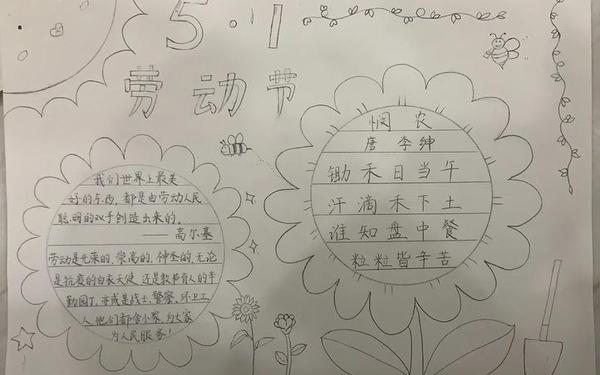 5·1
劳动节
悯农
唐 李绅
锄禾日当午
汗滴禾下土
谁知盘中餐
粒粒皆辛苦
我们世界上最美
好的东西,都是由劳动人民
聪明的双手创造出来的。
——高尔基
劳动是光荣的,崇高的,神圣的,无论
是抗疫的白衣天使,还是教书育人的辛
勤园丁,亦或是战士,警察,环卫工
人,他们都舍小家,为大家
为人民服务!